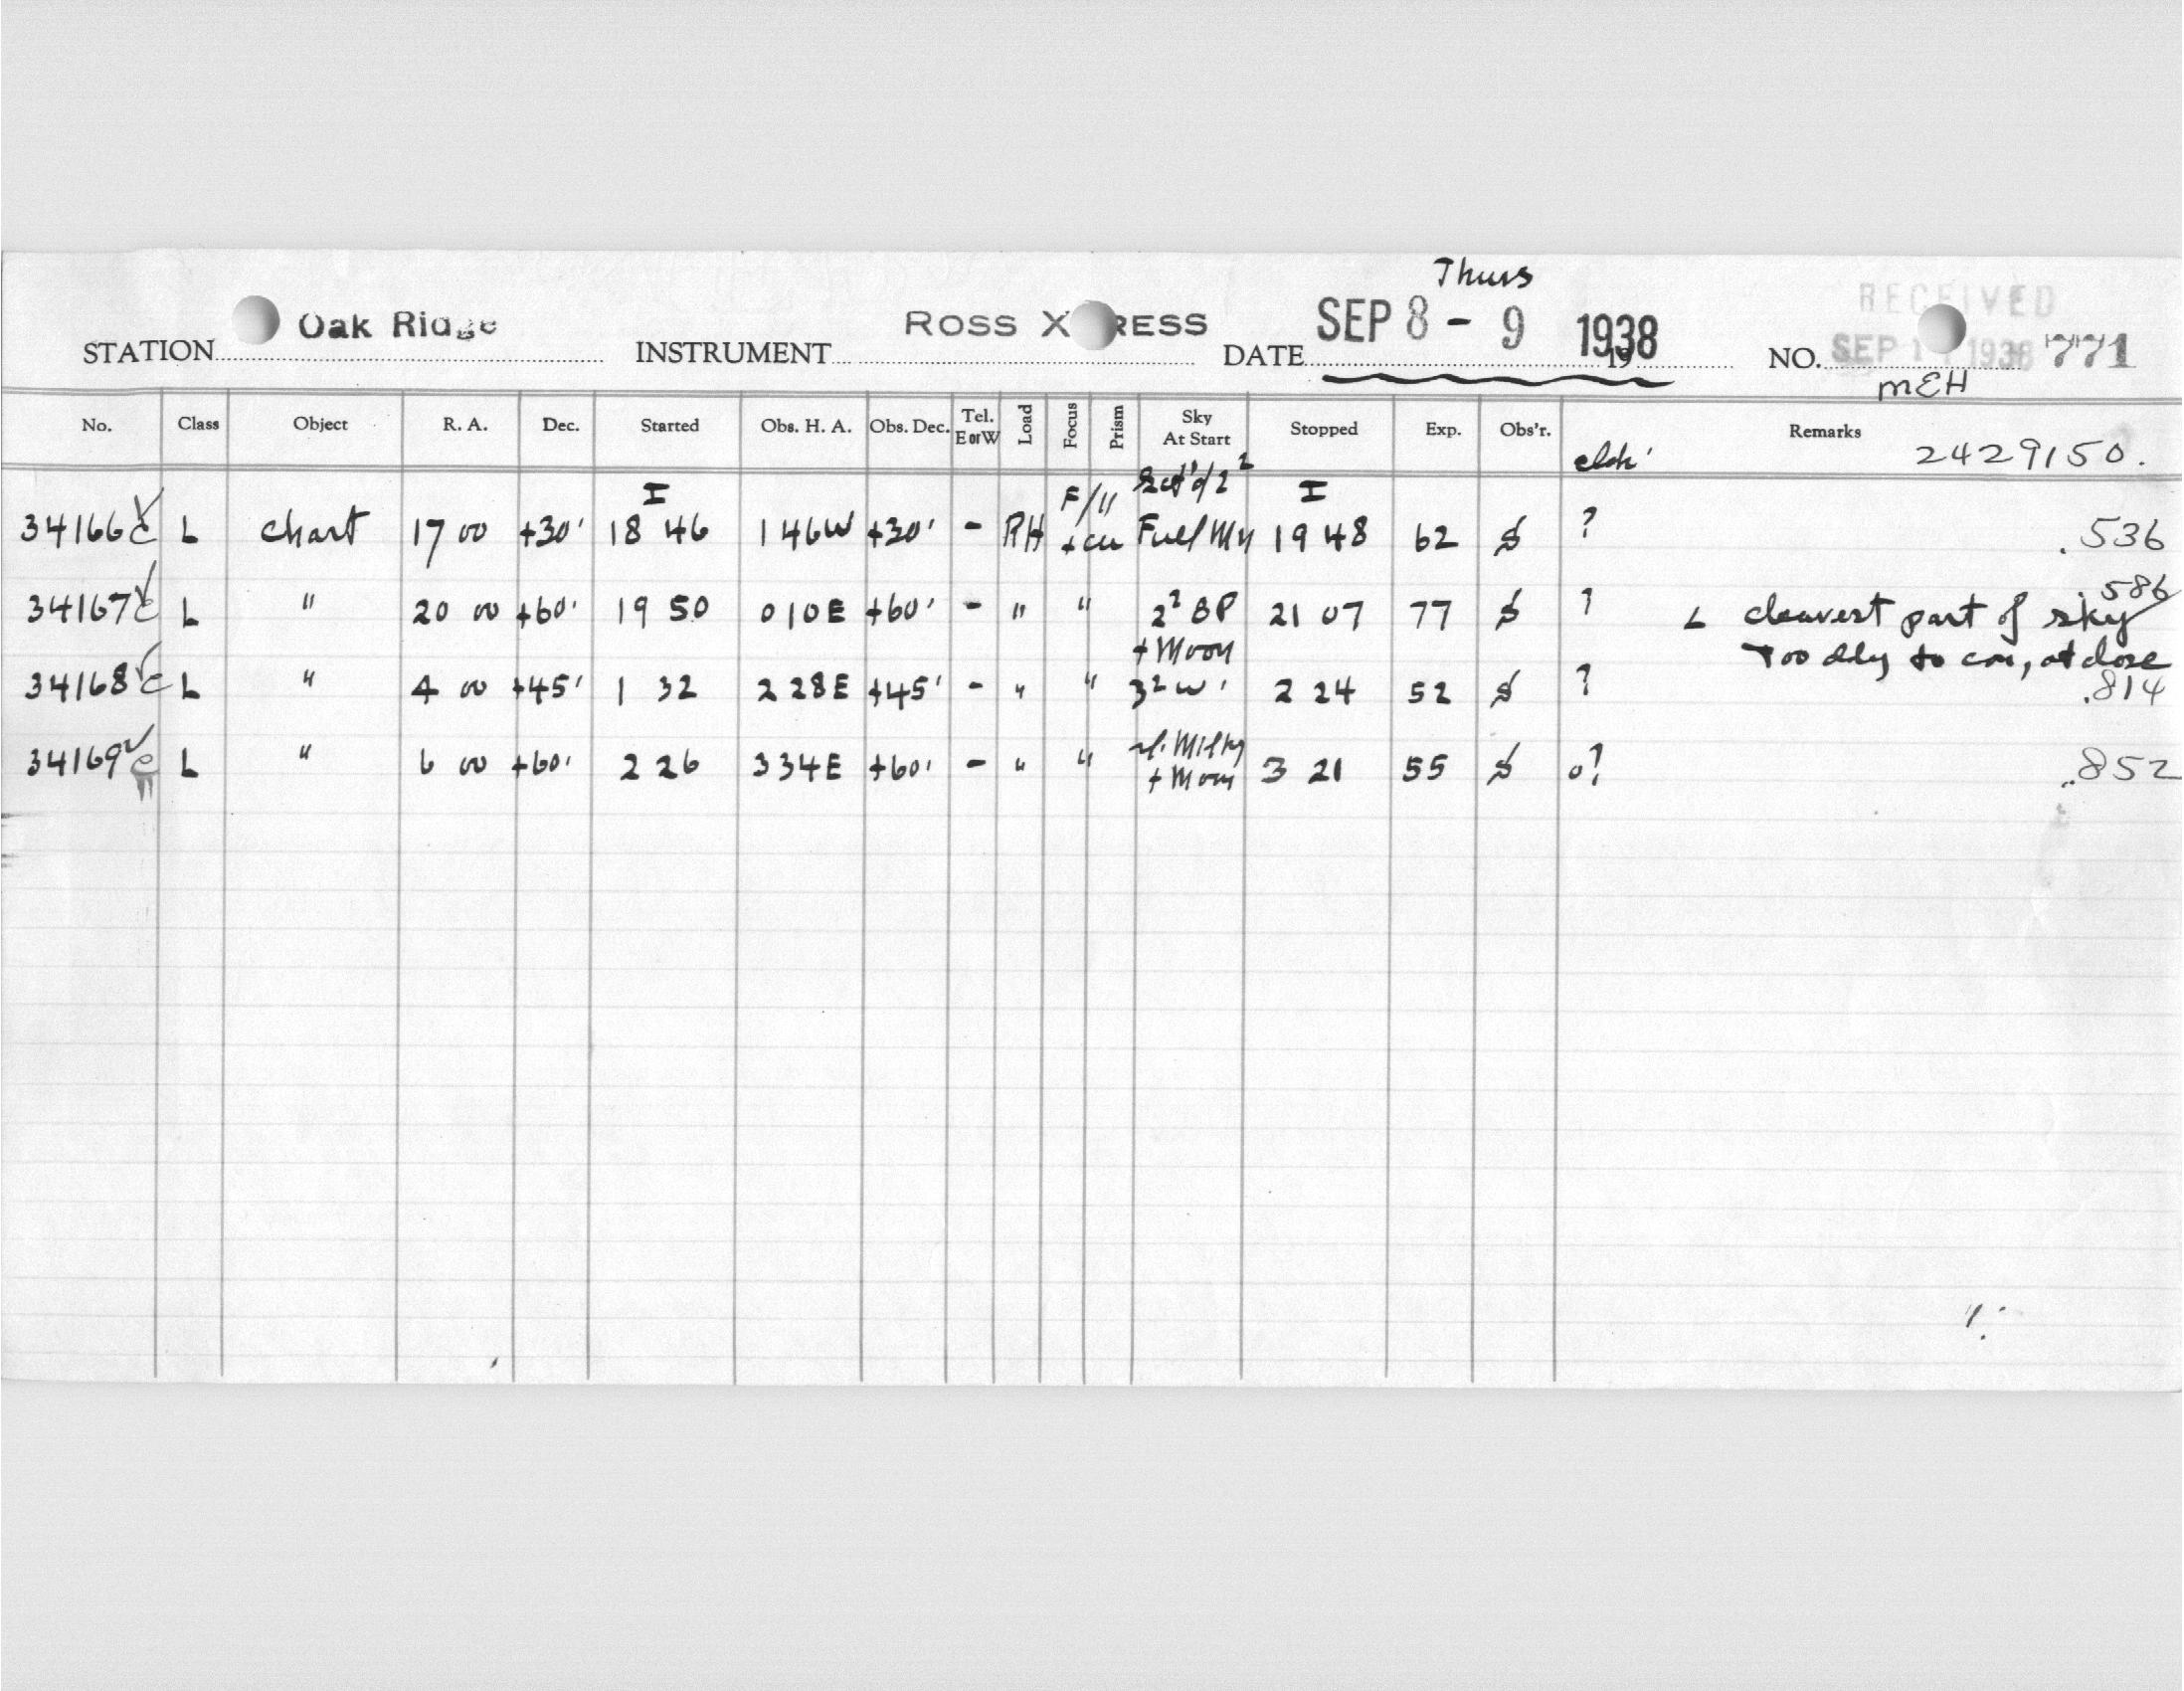 Thurs
STATION Oak Ridge INSTRUMENT ROSS X RESS DATE SEP 8 - 9 1938 19 NO. 771
RECEIVED
SEP 1 1938
MEH
No. Class Object R. A. Dec. Started Obs. H. A. Obs. Dec. Tel. E or W Load Focus Prism Sky At Start Stopped Exp. Obs'r. Remarks 2429150.
I F/11 I
34166 c L Chart 17 00 +30' 18 46 1 46W +30' - RH Full 19 48 62 $ ? .536
34167 c L " 20 00 +60' 19 50 0 10E +60' - " " 2² BP 21 07 77 $ ? L clearest part of sky 586
+ Moon Too cldy to con, at close
34168 c L " 4 00 +45' 1 32 2 28E +45' - " " 3² W' 2 24 52 $ ? .814
34169 c L " 6 00 +60' 2 26 3 34E +60' - " " Milky 3 21 55 $ 0? .852
+ Moon